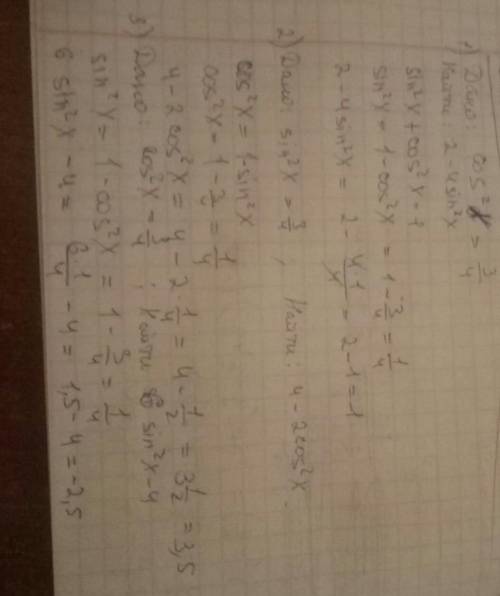 1) Дано: cos²x = 3/4
Найти: 2 - 4sin²x
sin²x + cos²x = 1
sin²x = 1 - cos²x = 1 - 3/4 = 1/4
2 - 4sin²x = 2 - 4·1/4 = 2 - 1 = 1
2) Дано: sin²x = 3/4, Найти: 4 - 2cos²x.
cos²x = 1 - sin²x
cos²x = 1 - 3/4 = 1/4
4 - 2cos²x = 4 - 2·1/4 = 4 - 1/2 = 3 1/2 = 3,5
3) Дано: cos²x = 3/4; Найти 6 sin²x - 4
sin²x = 1 - cos²x = 1 - 3/4 = 1/4
6 sin²x - 4 = 6·1/4 - 4 = 1,5 - 4 = -2,5